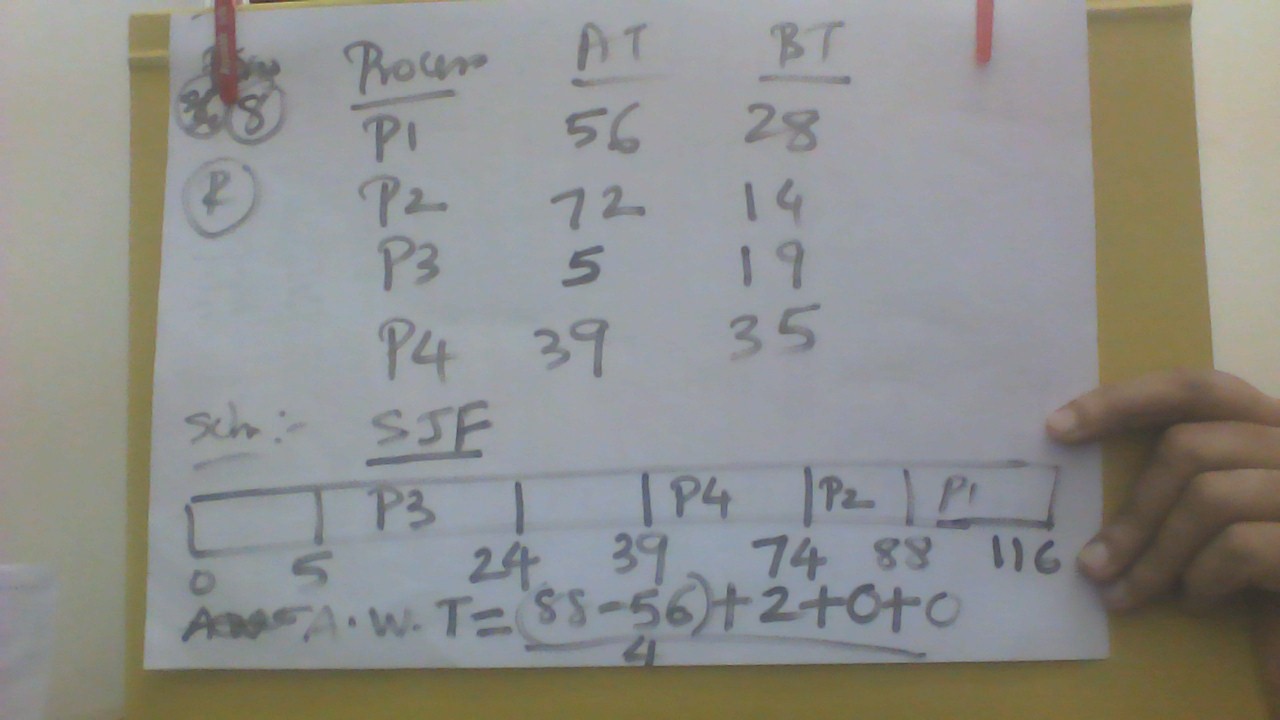 Process AT BT
8
P1 56 28
R
P2 72 14
P3 5 19
P4 39 35
Sch:- SJF
P3 P4 P2 P1
0 5 24 39 74 88 116
A.W.T=(88-56)+2+0+0
4